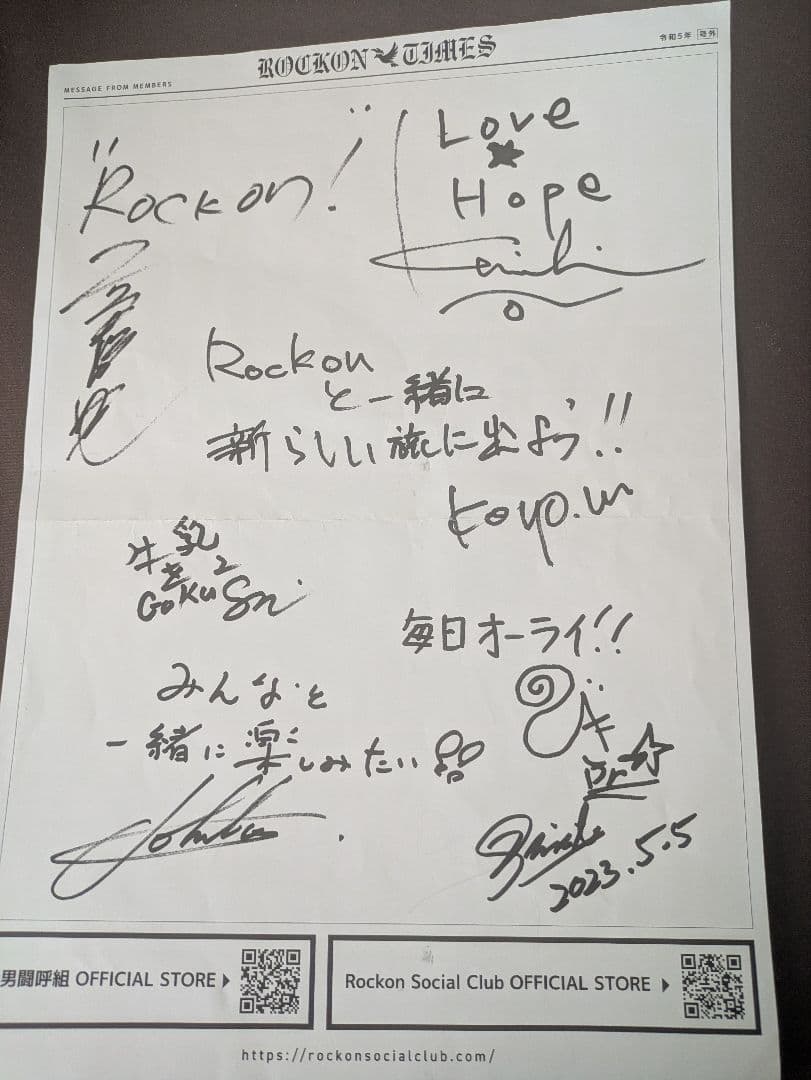 ROCKON TIMES
MESSAGE FROM MEMBERS
令和5年 号外
"Rockon!"
Love
★
Hope
Rockon
と一緒に
新らしい旅に出よう!!
Koyo.w
牛乳
GOKU
毎日オーライ!!
みんなと
一緒に楽しみたい
Dr☆
2023.5.5
男闘呼組 OFFICIAL STORE ▶
Rockon Social Club OFFICIAL STORE ▶
https://rockonsocialclub.com/